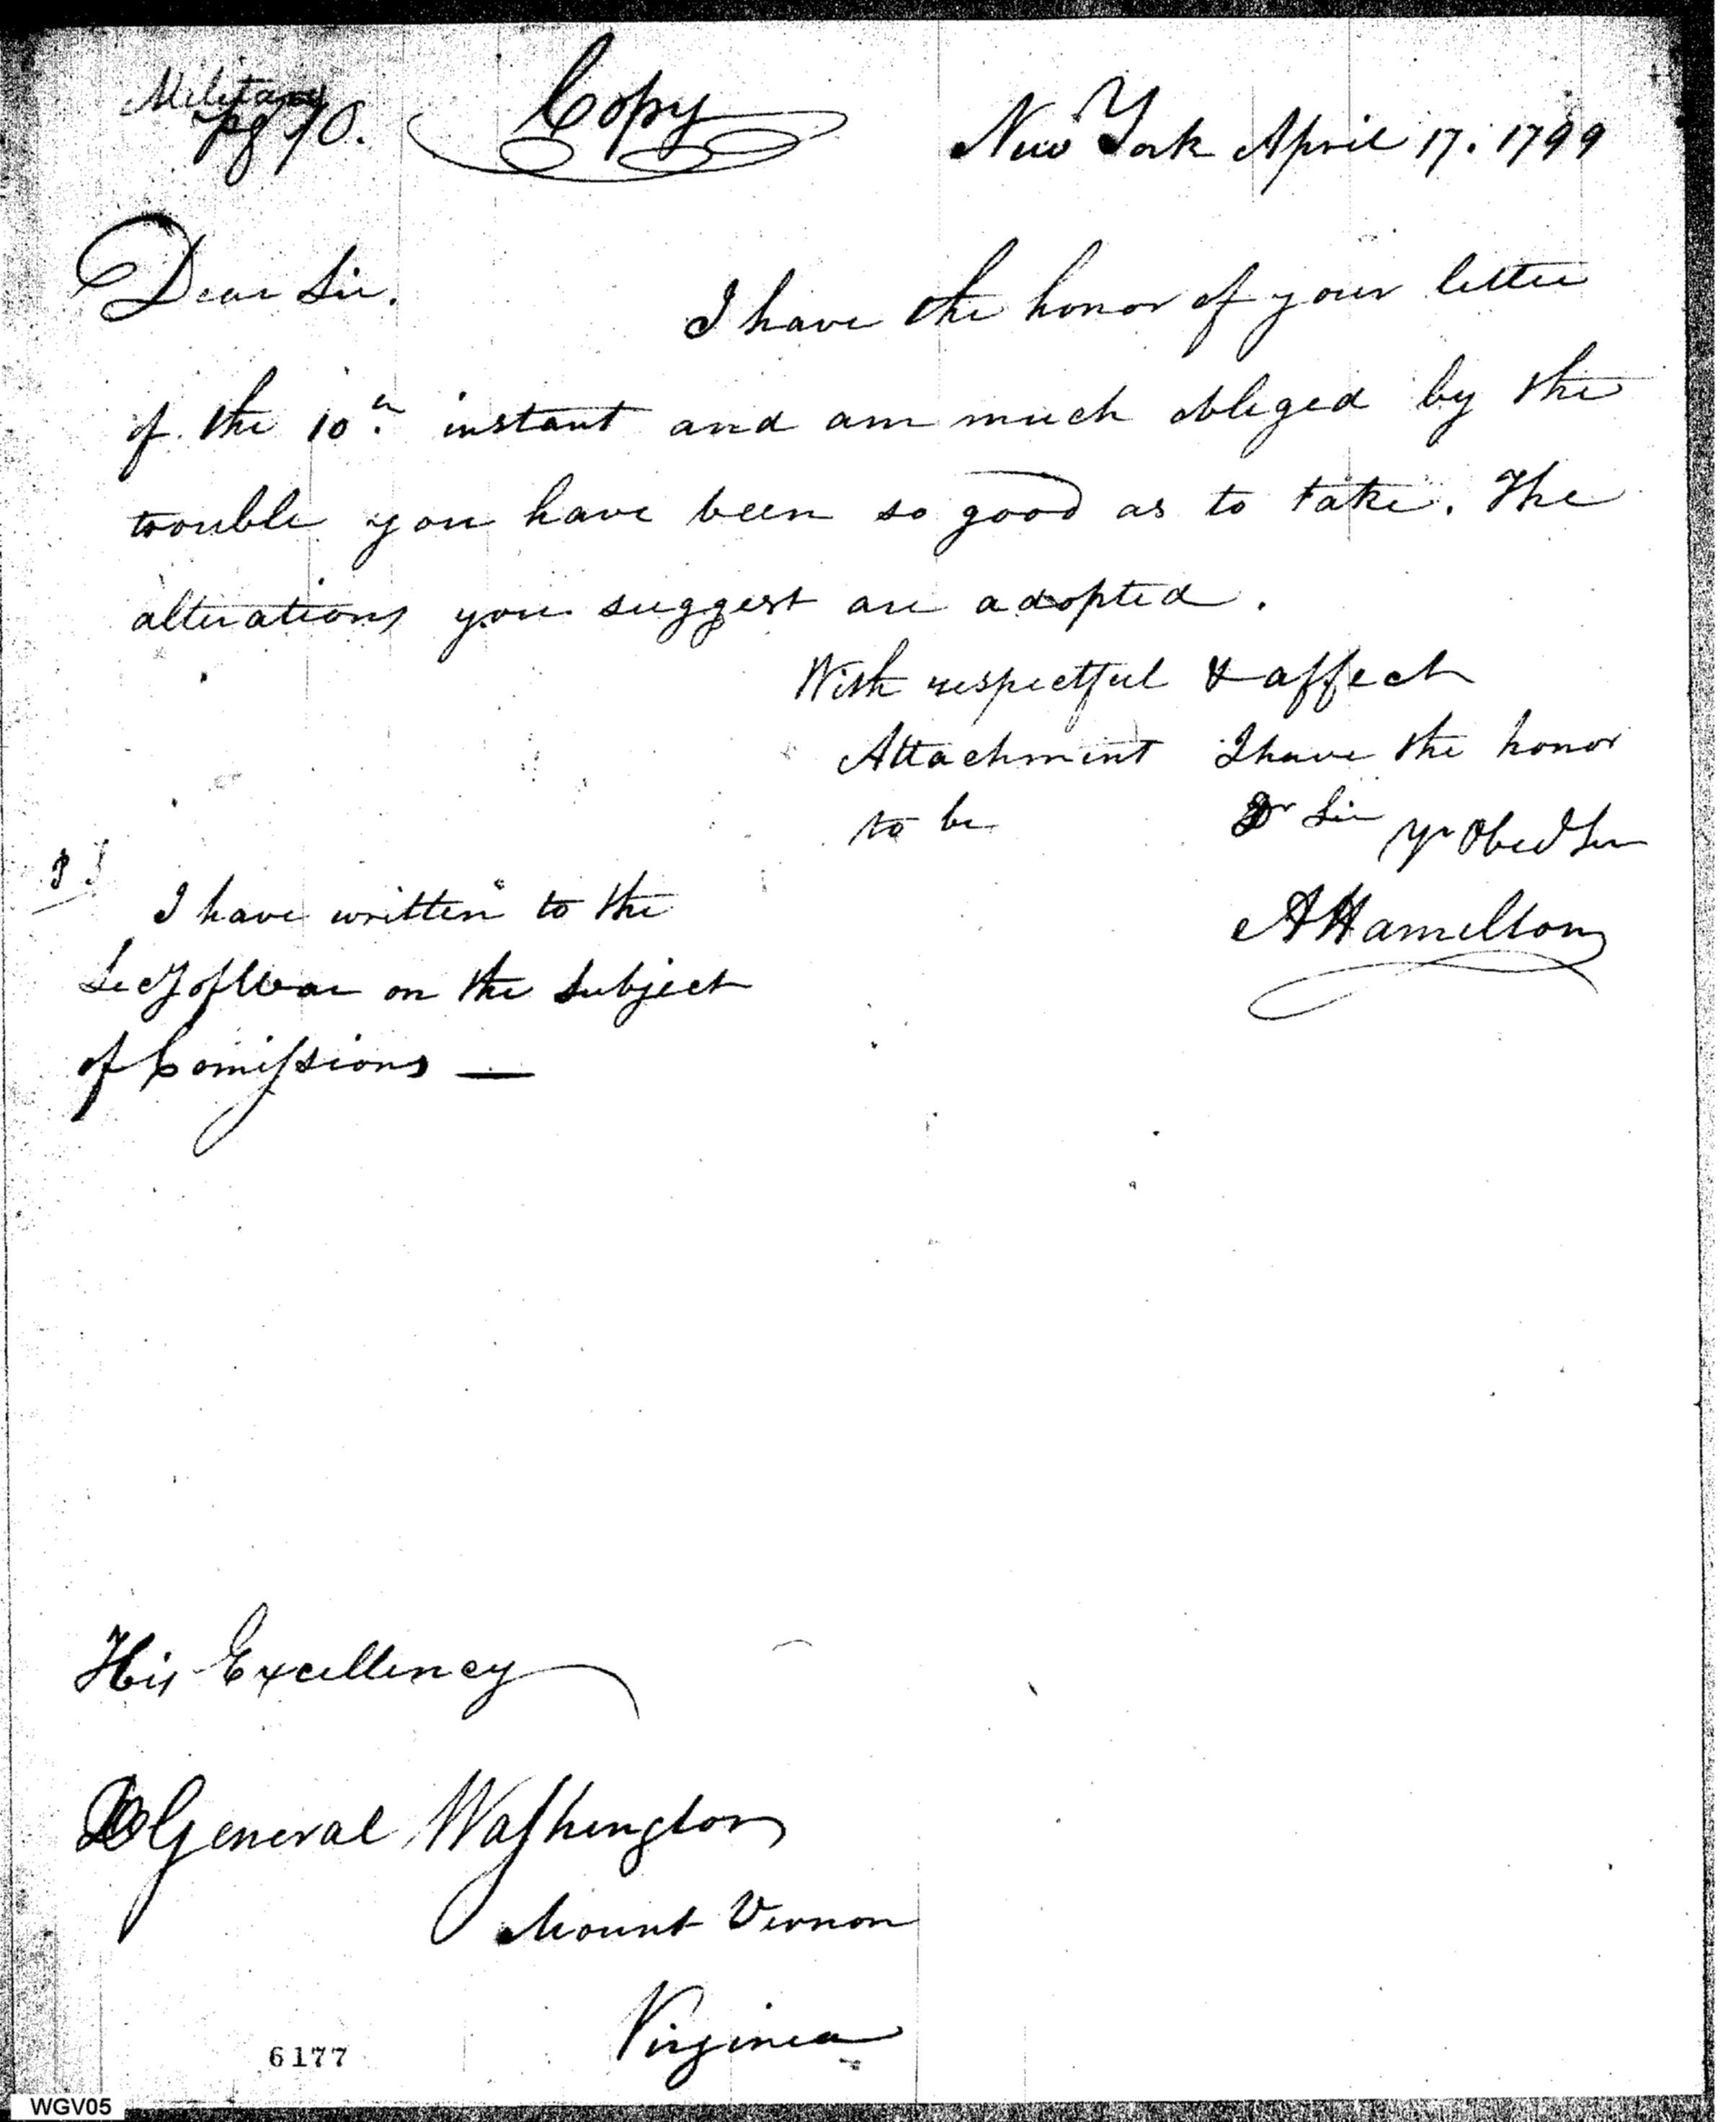 Military
pg 90.
Copy
New York April 17. 1799
Dear Sir.
I have the honor of your letter
of the 10th instant and am much obliged by the
trouble you have been so good as to take. The
alterations you suggest are adopted.
With respectful & affect
Attachment I have the honor
to be Dr Sir Yr Obed Ser
AHamilton
PS
I have written to the
Secy of War on the subject
of Comissions —
His Excellency
General Washington
Mount Vernon
Virginia
6177
WGV05